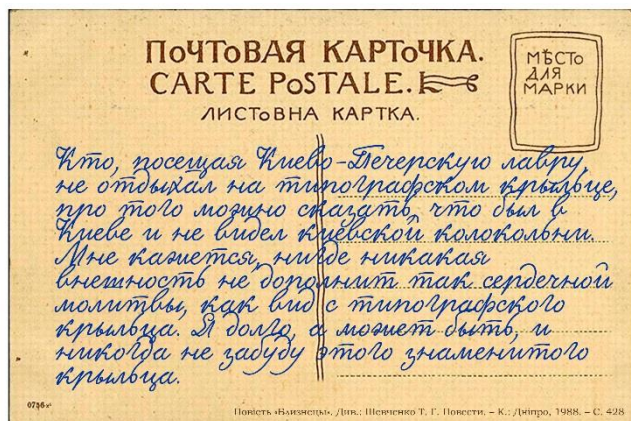 ПОЧТОВАЯ КАРТОЧКА.
CARTE POSTALE.
ЛИСТОВНА КАРТКА.
МѢСТО
ДЛЯ
МАРКИ
Кто, посещая Киево-Печерскую лавру,
не отдыхал на типографском крыльце,
про того можно сказать, что был в
Киеве и не видел киевской колокольни.
Мне кажется, нигде никакая
внешность не дополнит так сердечной
молитвы, как вид с типографского
крыльца. Я долго, а может быть, и
никогда не забуду этого знаменитого
крыльца.
Повість «Близнецы». Див.: Шевченко Т. Г. Повести. – К.: Дніпро, 1988. – С. 428